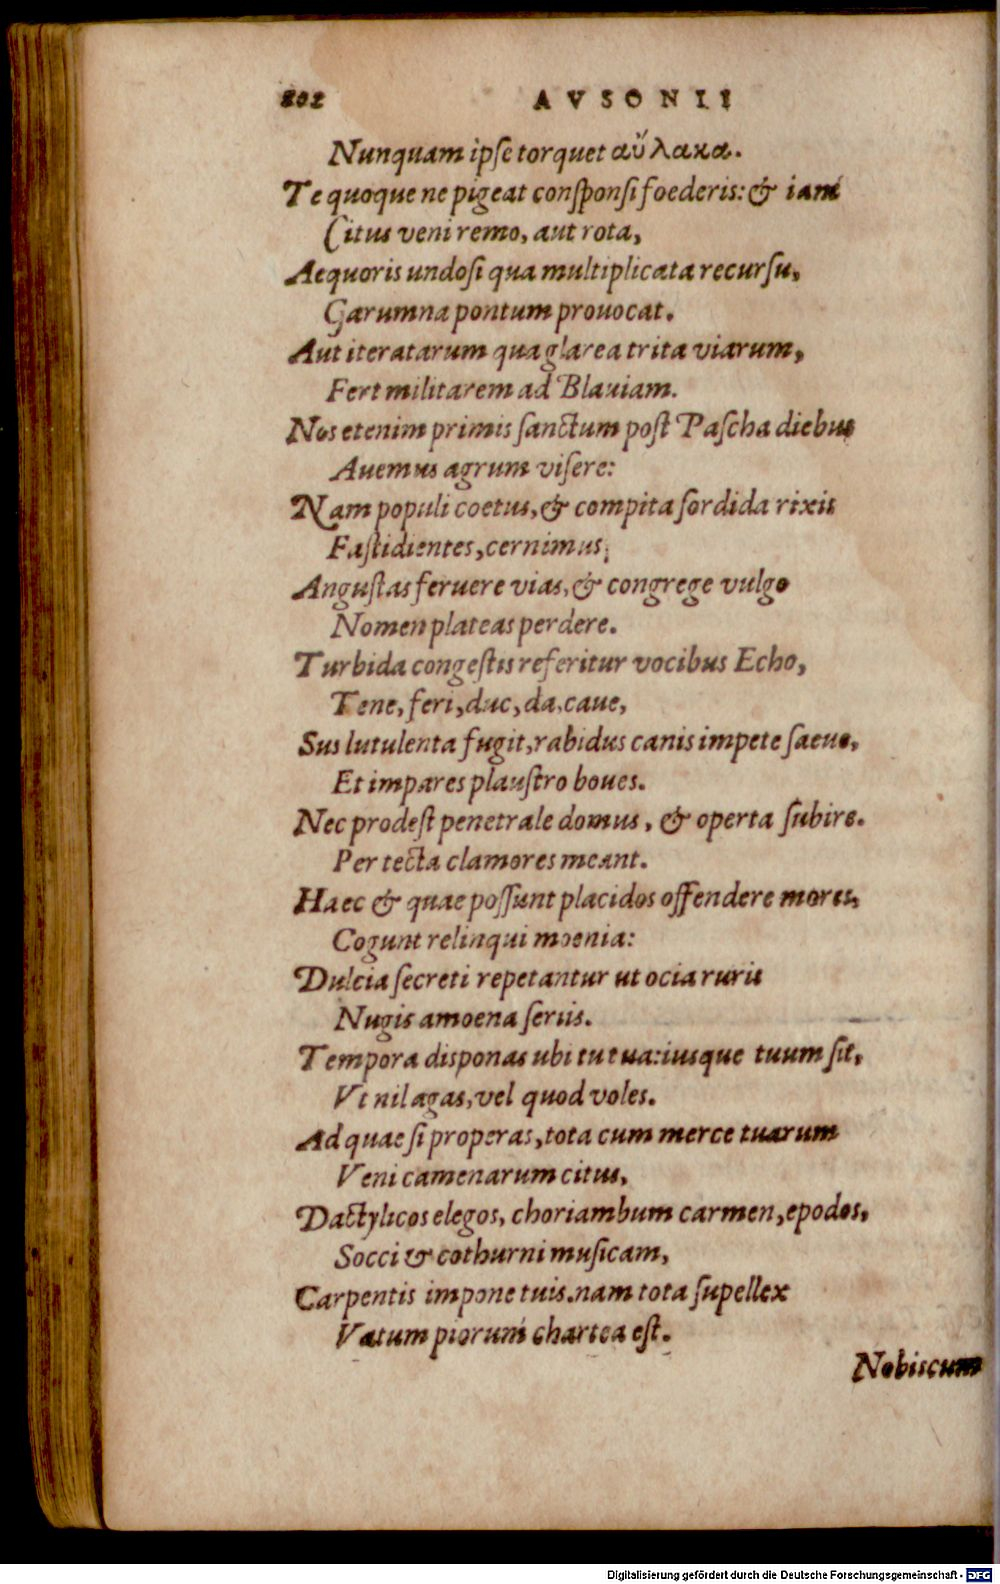 202 AVSONII
Nunquam ipſe torquet αὔλακα.
Te quoque ne pigeat conſponſi foederis: & iam
Citus veni remo, aut rota,
Aequoris undoſi qua multiplicata recurſu,
Garumna pontum prouocat.
Aut iteratarum qua glarea trita viarum,
Fert militarem ad Blauiam.
Nos etenim primis ſanctum poſt Paſcha diebus
Auemus agrum viſere:
Nam populi coetus, & compita ſordida rixis
Faſtidientes, cernimus,
Anguſtas feruere vias, & congrege vulgo
Nomen plateas perdere.
Turbida congeſtis referitur vocibus Echo,
Tene, feri, duc, da, caue,
Sus lutulenta fugit, rabidus canis impete ſaeuo,
Et impares plauſtro boues.
Nec prodeſt penetrale domus, & operta ſubire.
Per tecta clamores meant.
Haec & quae poſſunt placidos offendere mores,
Cogunt relinqui moenia:
Dulcia ſecreti repetantur ut ocia ruris
Nugis amoena ſeriis.
Tempora diſponas ubi tu tua: iusque tuum ſit,
Vt nil agas, vel quod voles.
Ad quae ſi properas, tota cum merce tuarum
Veni camenarum citus,
Dactylicos elegos, choriambum carmen, epodos,
Socci & cothurni muſicam,
Carpentis impone tuis. nam tota ſupellex
Vatum piorum chartea eſt.
Nobiscum
Digitalisierung gefördert durch die Deutsche Forschungsgemeinschaft - DFG